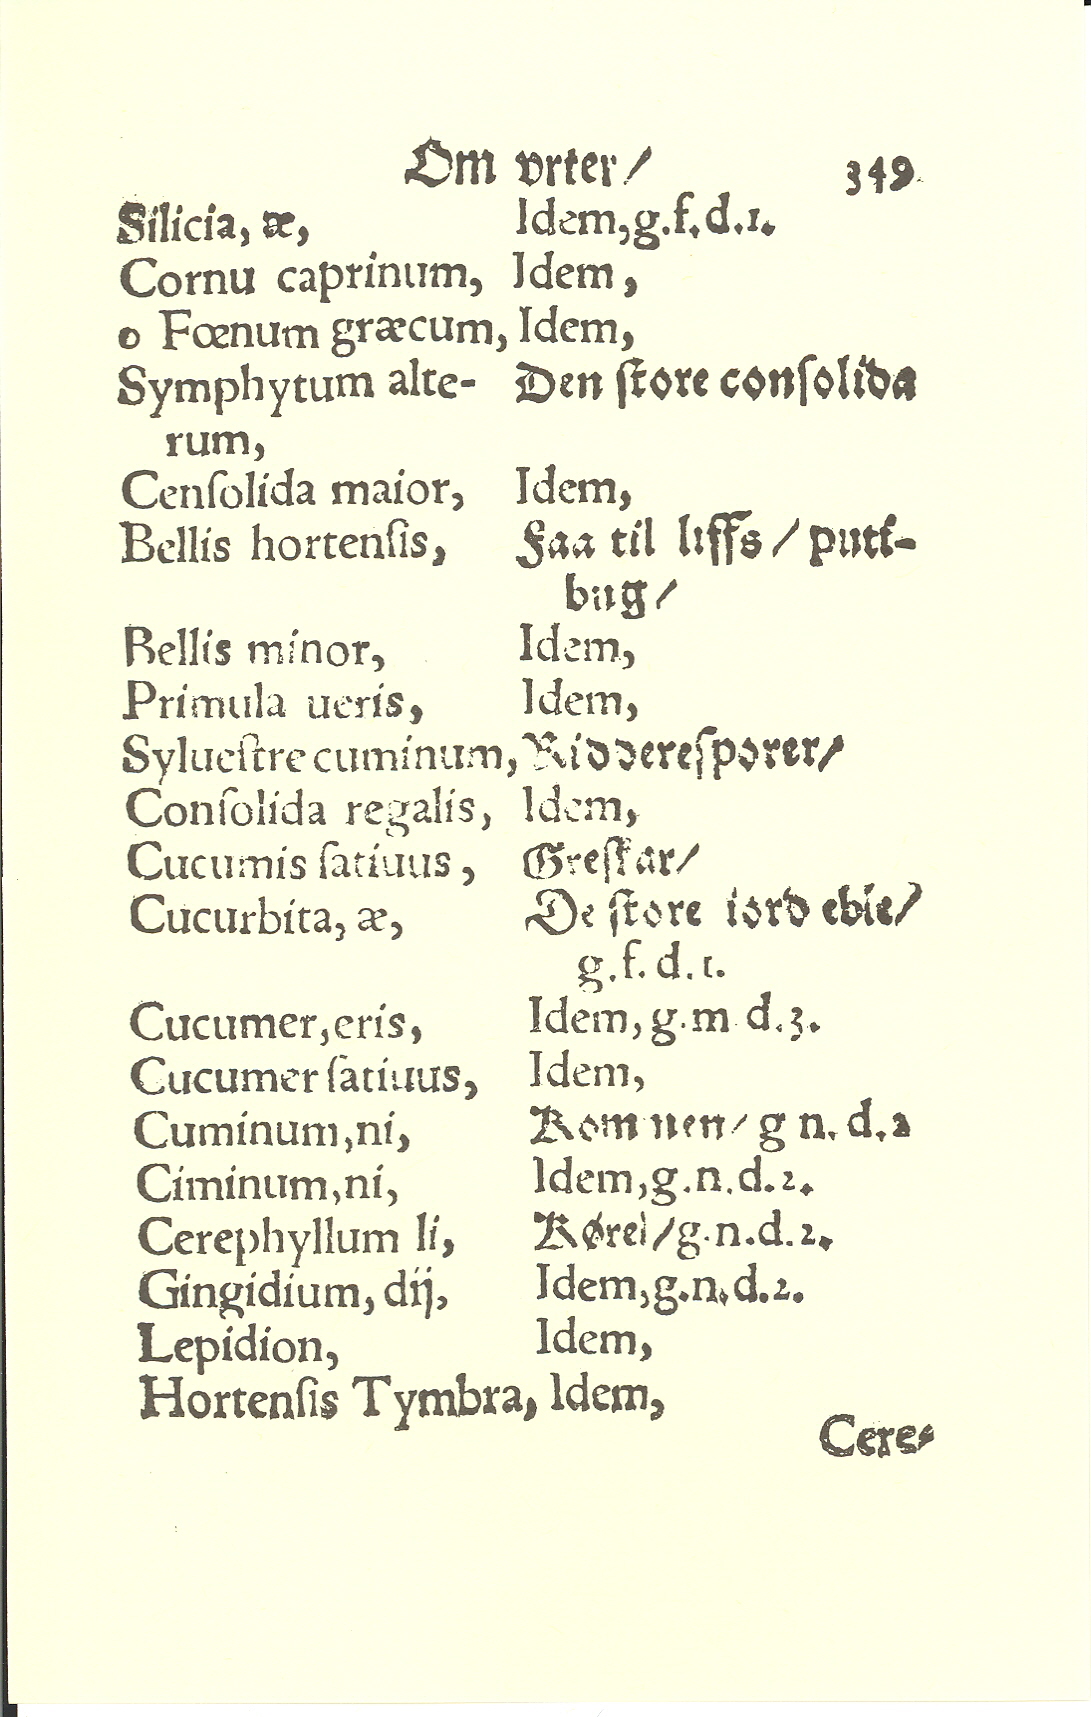 Om vrter/ 349
Silicia, æ, Idem,g.f.d.1.
Cornu caprinum, Idem,
o Fœnum græcum, Idem,
Symphytum alte- Den ſtore conſolida
rum,
Cenſolida maior, Idem,
Bellis hortenſis, Faa til liffs/ putt-
bug/
Bellis minor, Idem,
Primula ueris, Idem,
Sylueſtre cuminum, Riddereſporer/
Conſolida regalis, Idem,
Cucumis ſatiuus, Greſkar/
Cucurbita, æ, De ſtore iord eble/
g.f.d.1.
Cucumer,eris, Idem,g.m d.3.
Cucumer ſatiuus, Idem,
Cuminum,ni, Kommen/ g n.d.2
Ciminum,ni, Idem,g.n.d.2.
Cerephyllum li, Kørel/g.n.d.2.
Gingidium, dij, Idem,g.n.d.2.
Lepidion, Idem,
Hortenſis Tymbra, Idem,
Cere-